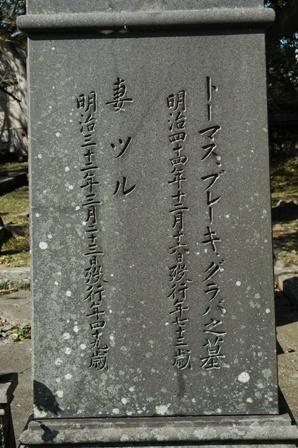 トーマス、ブレーキ、グラバ之墓
明治四十四年十二月十六日歿行年七十三歳
妻ツル
明治三十二年三月二十三日歿行年四九歳